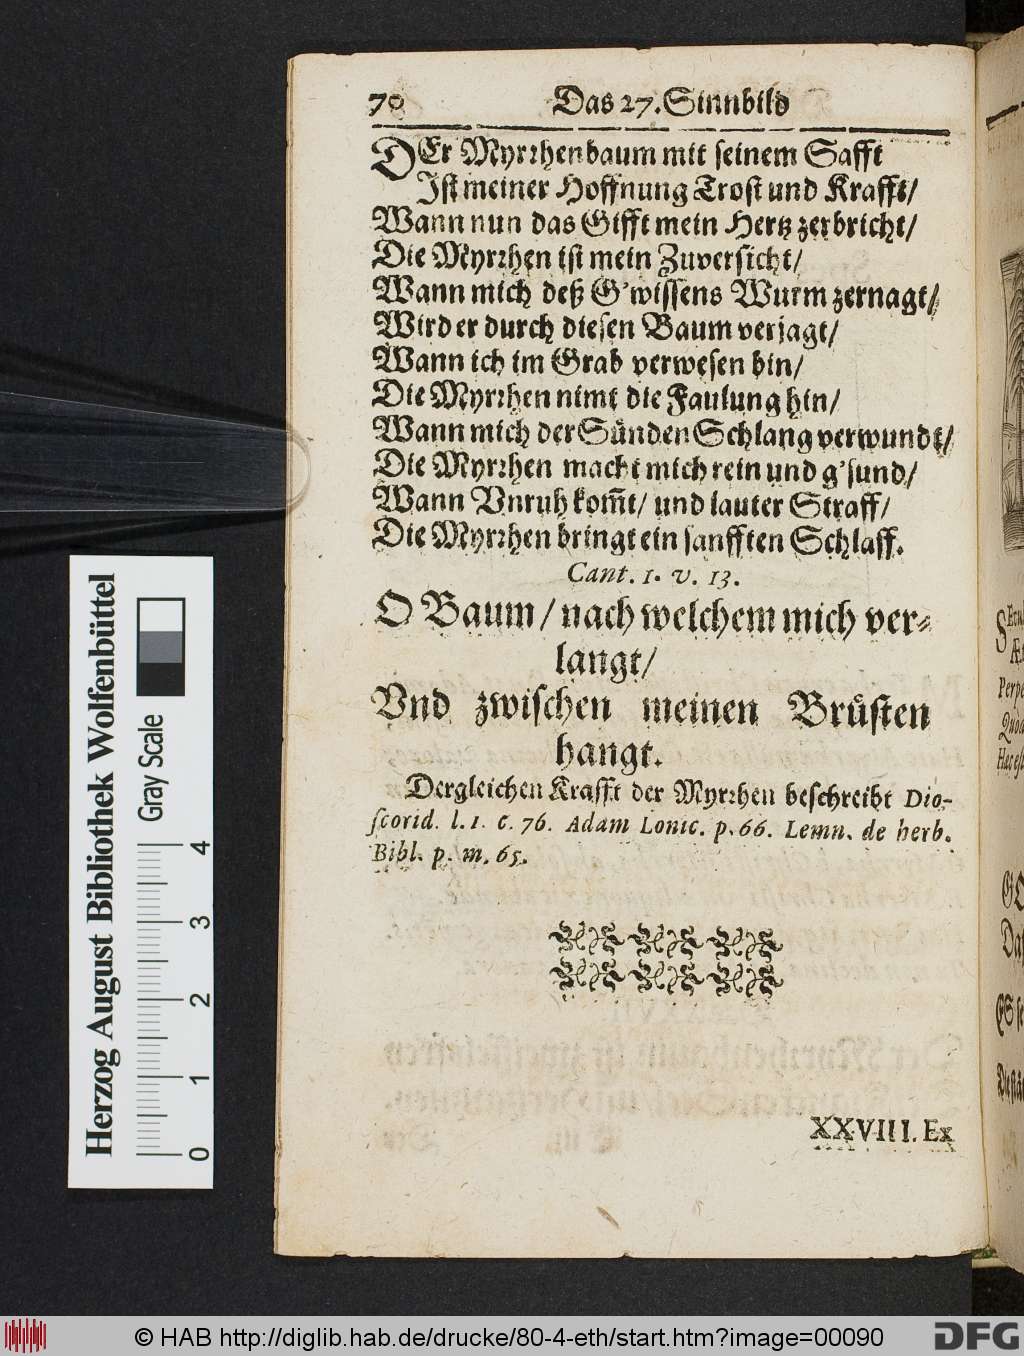 70 Das 27. Sinnbild
DEr Myrrhenbaum mit seinem Safft
Ist meiner Hoffnung Trost und Krafft/
Wann nun das Gifft mein Hertz zerbricht/
Die Myrrhen ist mein Zuversicht/
Wann mich deß G'wissens Wurm zernagt/
Wird er durch diesen Baum verjagt/
Wann ich im Grab verwesen bin/
Die Myrrhen nimt die Faulung hin/
Wann mich der Sünden Schlang verwundt/
Die Myrrhen macht mich rein und g'sund/
Wann Vnruh kom̃t/ und lauter Straff/
Die Myrrhen bringt ein sanfften Schlaff.
Cant. 1. v. 13.
O Baum/ nach welchem mich ver-
langt/
Vnd zwischen meinen Brüsten
hangt.
Dergleichen Krafft der Myrrhen beschreibt Dio-
scorid. l. 1. c. 76. Adam Lonic. p. 66. Lemn. de herb.
Bibl. p. m. 65.
XXVIII. Ex
Herzog August Bibliothek Wolfenbüttel
Gray Scale
0 1 2 3 4
© HAB http://diglib.hab.de/drucke/80-4-eth/start.htm?image=00090
DFG